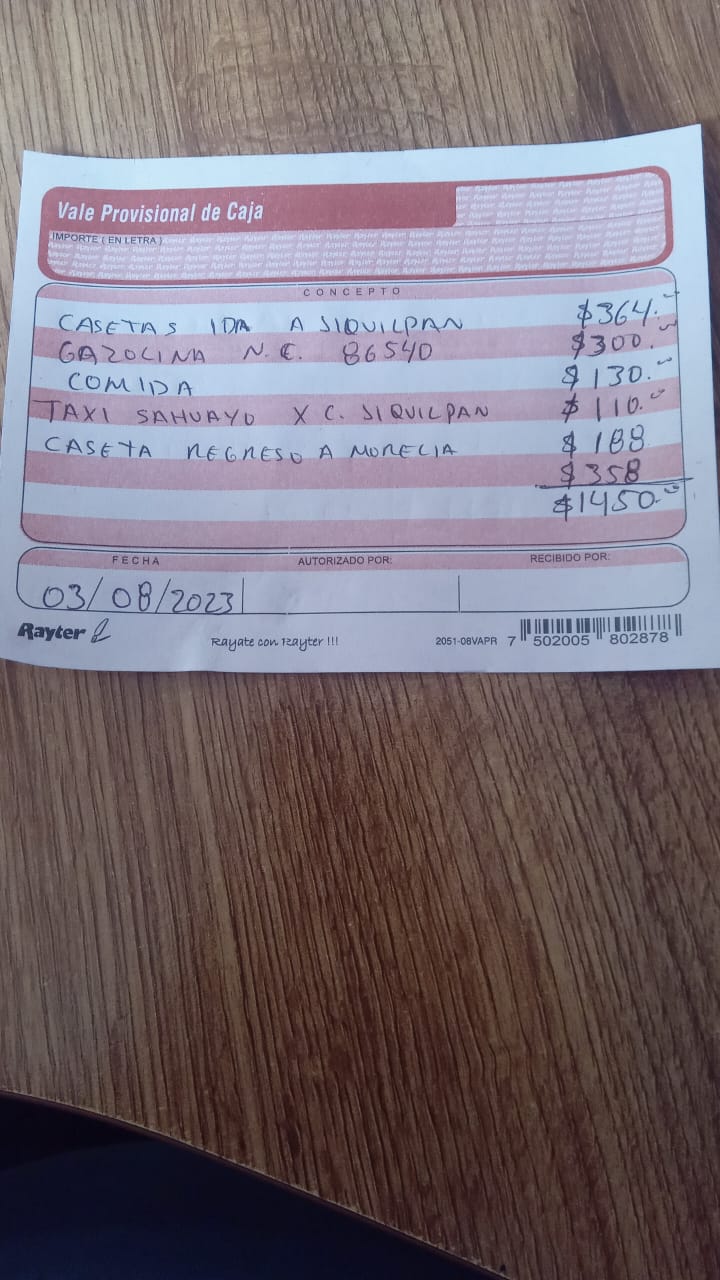 Vale Provisional de Caja
IMPORTE ( EN LETRA )
CONCEPTO
CASETAS IDA A JIQUILPAN $364.--
GAZOLINA N.C. 86540 $300.--
COMIDA $130.--
TAXI SAHUAYO X C. JIQUILPAN $110.--
CASETA REGRESO A MORELIA $188
$358
$1450.--
FECHA AUTORIZADO POR: RECIBIDO POR:
03/08/2023
Rayter Rayate con Rayter !!! 2051-08VAPR 7 502005 802878